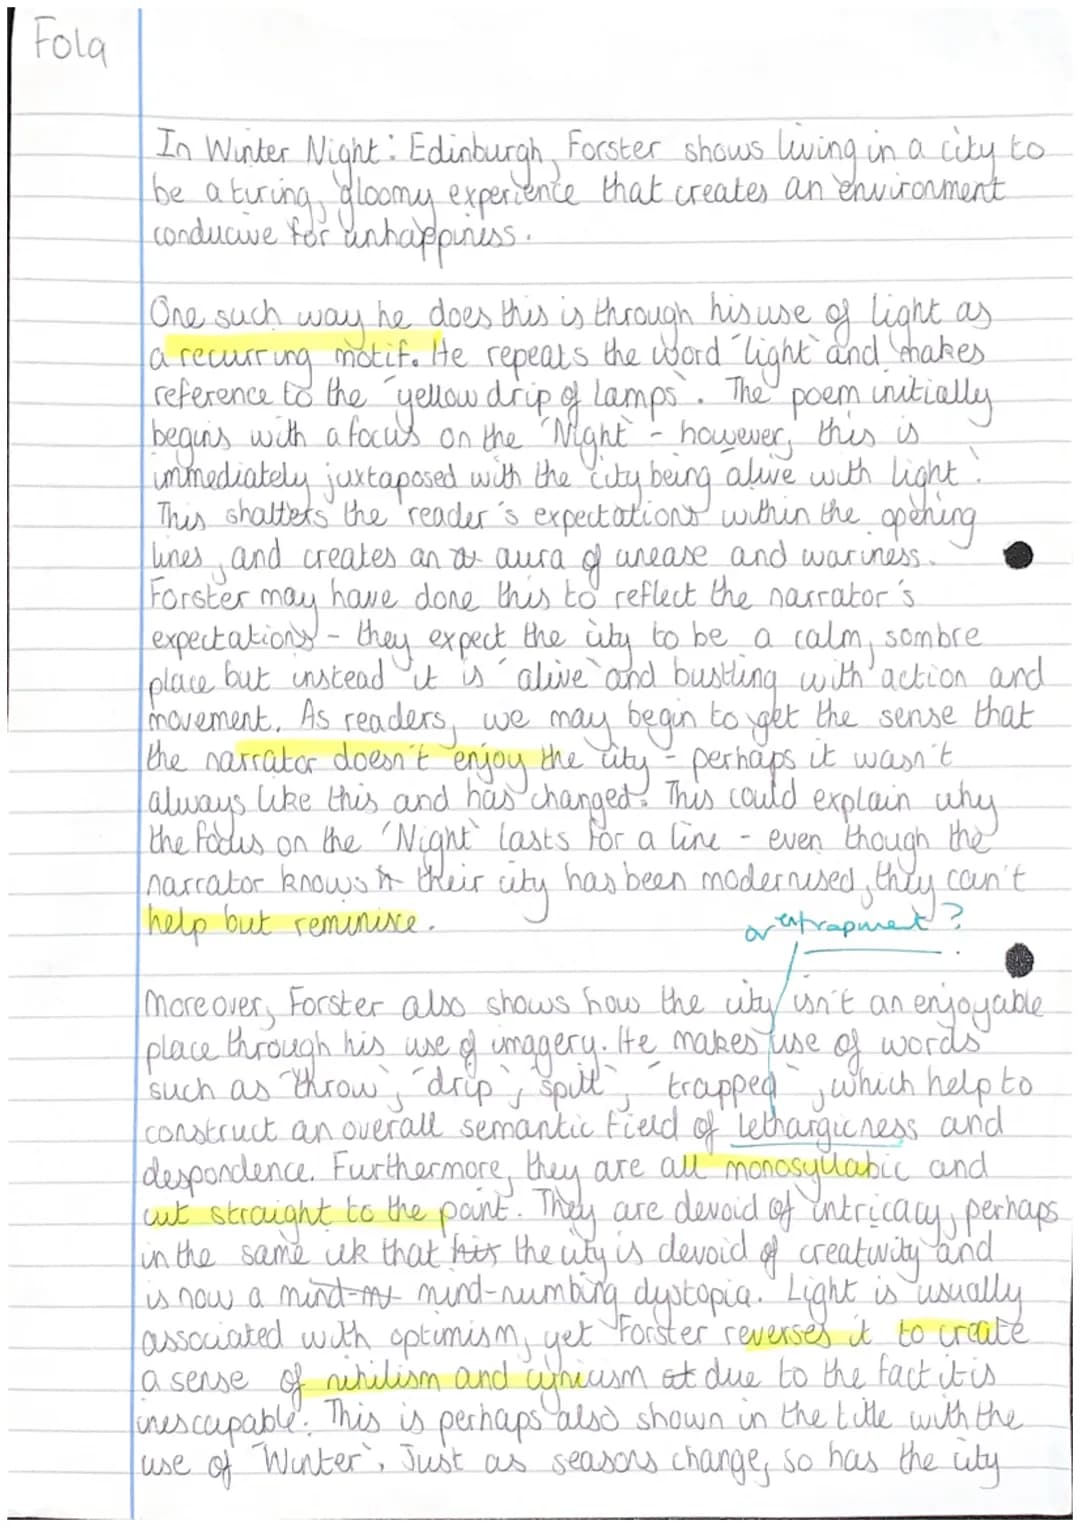 Fola
In Winter Night: Edinburgh, Forster shows living in a city to
be a tiring, gloomy experience that creates an environment
conducive for unhappiness.
One such way he does this is through his use of light as
a recurring motif. He repeats the word "light" and makes
reference to the "yellow drip of lamps". The poem initially
begins with a focus on the 'Night' - however, this is
immediately juxtaposed with the city being alive with light'.
This shatters the reader's expectations within the opening
lines, and creates an aura of unease and wariness.
Forster may have done this to reflect the narrator's
expectations - they expect the city to be a calm, sombre
place but instead it is 'alive' and bustling with action and
movement. As readers, we may begin to get the sense that
the narrator doesn't enjoy the city - perhaps it wasn't
always like this and has changed? This could explain why
the focus on the 'Night' lasts for a line - even though the
narrator knows their city has been modernised, they can't
help but reminisce.
or entrapment?
Moreover, Forster also shows how the city isn't an enjoyable
place through his use of imagery. He makes use of words
such as "throw", "drip", "spill", "trapped", which help to
construct an overall semantic field of lethargicness and
despondence. Furthermore, they are all monosyllabic and
cut straight to the point. They are devoid of intricacy, perhaps
in the same way that his the city is devoid of creativity and
is now a mind-my mind-numbing dystopia. Light is usually
associated with optimism, yet Forster reverses it to create
a sense of nihilism and cynicism at due to the fact it is
inescapable. This is perhaps also shown in the title with the
use of "Winter". Just as seasons change, so has the city